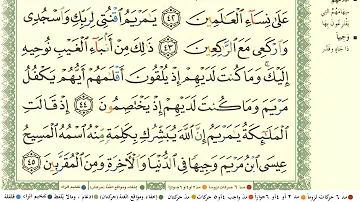 عَلَىٰ نِسَآءِ ٱلْعَٰلَمِينَ ٤٢ يَٰمَرْيَمُ ٱقْنُتِى لِرَبِّكِ وَٱسْجُدِى
وَٱرْكَعِى مَعَ ٱلرَّٰكِعِينَ ٤٣ ذَٰلِكَ مِنْ أَنۢبَآءِ ٱلْغَيْبِ نُوحِيهِ
إِلَيْكَ وَمَا كُنتَ لَدَيْهِمْ إِذْ يُلْقُونَ أَقْلَٰمَهُمْ أَيُّهُمْ يَكْفُلُ
مَرْيَمَ وَمَا كُنتَ لَدَيْهِمْ إِذْ يَخْتَصِمُونَ ٤٤ إِذْ قَالَتِ
ٱلْمَلَٰٓئِكَةُ يَٰمَرْيَمُ إِنَّ ٱللَّهَ يُبَشِّرُكِ بِكَلِمَةٍ مِّنْهُ ٱسْمُهُ ٱلْمَسِيحُ
عِيسَى ٱبْنُ مَرْيَمَ وَجِيهًا فِى ٱلدُّنْيَا وَٱلْءَاخِرَةِ وَمِنَ ٱلْمُقَرَّبِينَ ٤٥